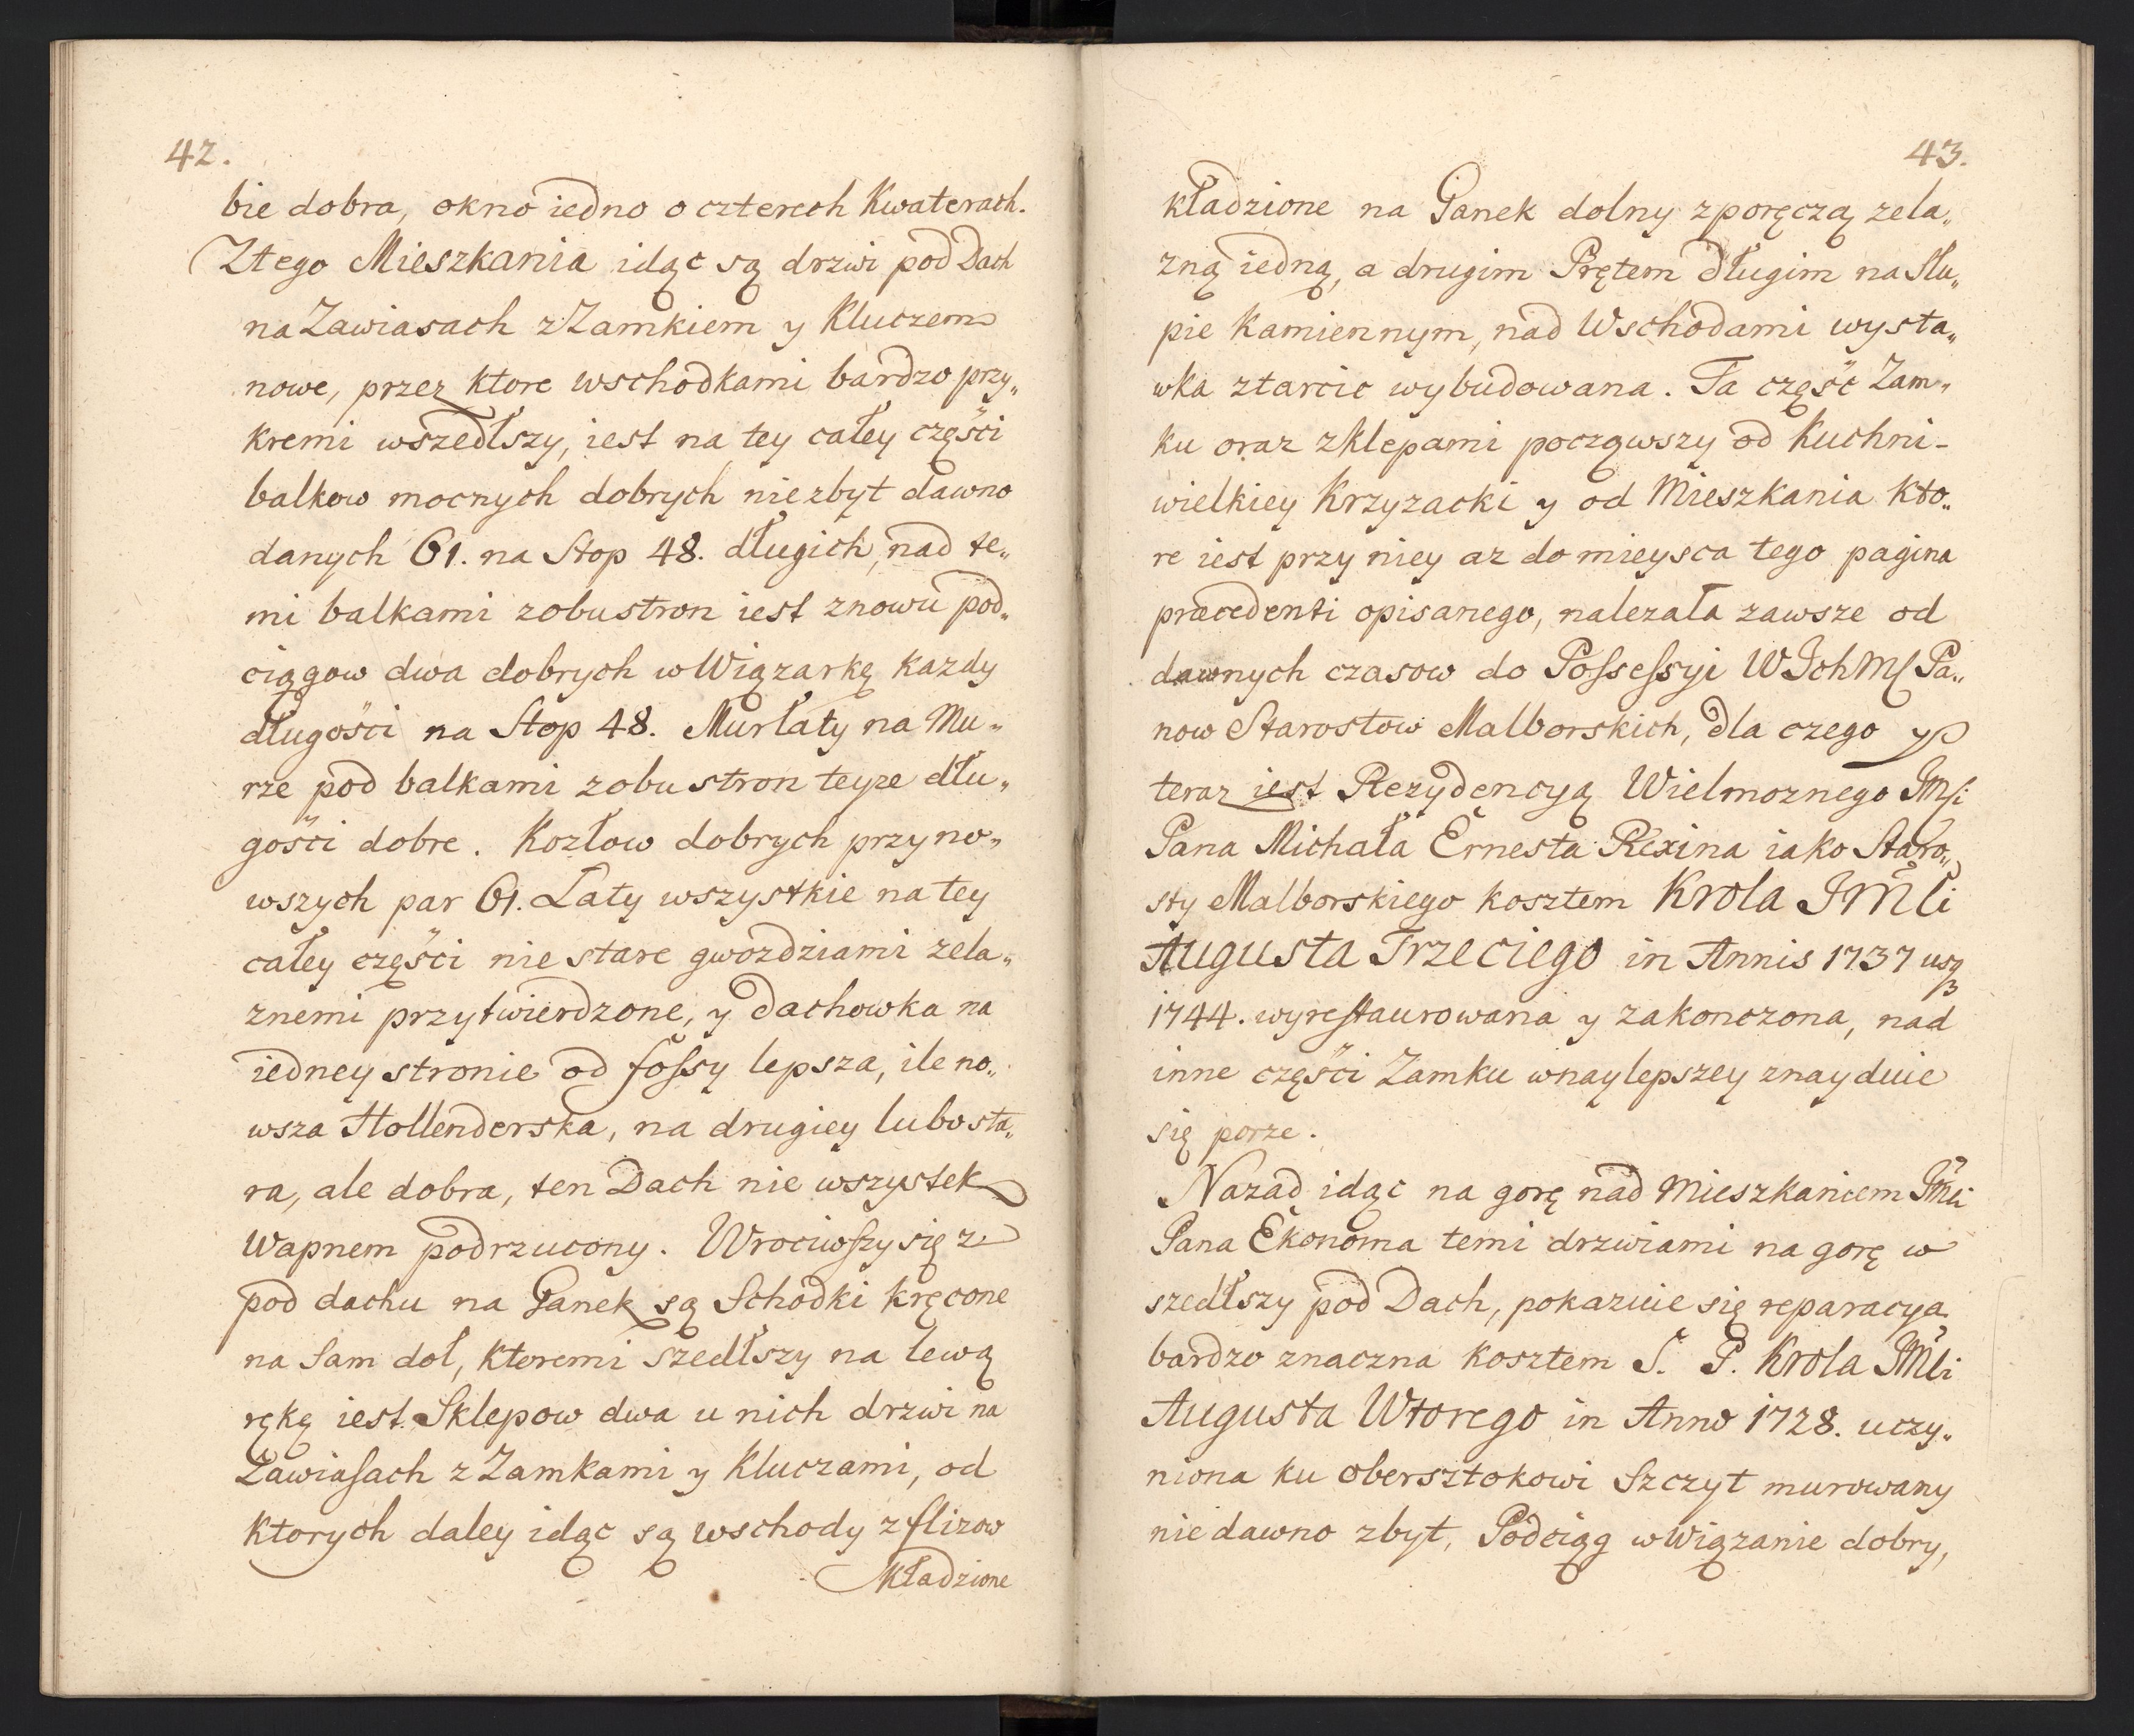 42.
bie dobra, okno iedno o czterech Kwaterach.
Ztego Mieszkania idąc są drzwi pod Dach
na Zawiasach z Zamkiem y Kluczem
nowe, przez ktore wschodkami bardzo przy„
kremi wszedłszy, iest na tey całey części
balkow mocnych dobrych nie zbyt dawno
danych 61. na Stop 48. długich, nad te„
mi balkami zobustron iest znowu pod„
ciągow dwa dobrych w Wiązarkę kazdy
długości na Stop 48. Murłaty na Mu„
rze pod balkami zobustron teyze dłu„
gości dobre. Kozłow dobrych przyno„
wszych par 61. Łaty wszystkie na tey
całey części nie stare gwozdziami zela„
znemi przytwierdzone, y dachowka na
iedney stronie od fossy lepsza, ile no„
wsza Hollenderska, na drugiey lubo sta„
ra, ale dobra, ten Dach nie wszystek
Wapnem podrzucony. Wrociwszy się z
pod dachu na Ganek są Schodki kręcone
na Sam doł, ktoremi szedłszy na lewą
rękę iest Sklepow dwa u nich drzwi na
Zawiasach z Zamkami y Kluczami, od
ktorych daley idąc są wschody z flizow
kładzione
43.
kładzione na Ganek dolny z poręczą zela„
zną iedną, a drugim Prętem długim na Słu„
pie Kamiennym, nad Wschodami wysta„
wka ztarcic wybudowana. Ta część Zam„
ku oraz zklepami począwszy od Kuchni
wielkiey Krzyzacki y od Mieszkania kto„
re iest przy niey az do mieysca tego pagina
præcedenti opisanego, nalezała zawsze od
dawnych czasow do Possessyi WJchMſ Pa„
now Starostow Malborskich, dla czego y
teraz iest Rezydencyą Wielmoznego JMſci
Pana Michała Ernesta Rexina iako Staro„
sty Malborskiego kosztem Krola JMci
Augusta Trzeciego in Annis 1737 usq
1744. wyrestaurowana y zakonczona, nad
inne części Zamku w naylepszey znayduie
się porze.
Nazad idąc na gorę nad Mieszkaniem JMci
Pana Ekonoma temi drzwiami na gorę w
szedłszy pod Dach, pokazuie się reparacya
bardzo znaczna kosztem S. P. Krola JMci
Augusta Wtorego in Anno 1728. uczy„
niona ku obersztokowi Szczyt murowany
nie dawno zbyt, Podciąg w Wiązanie dobry,